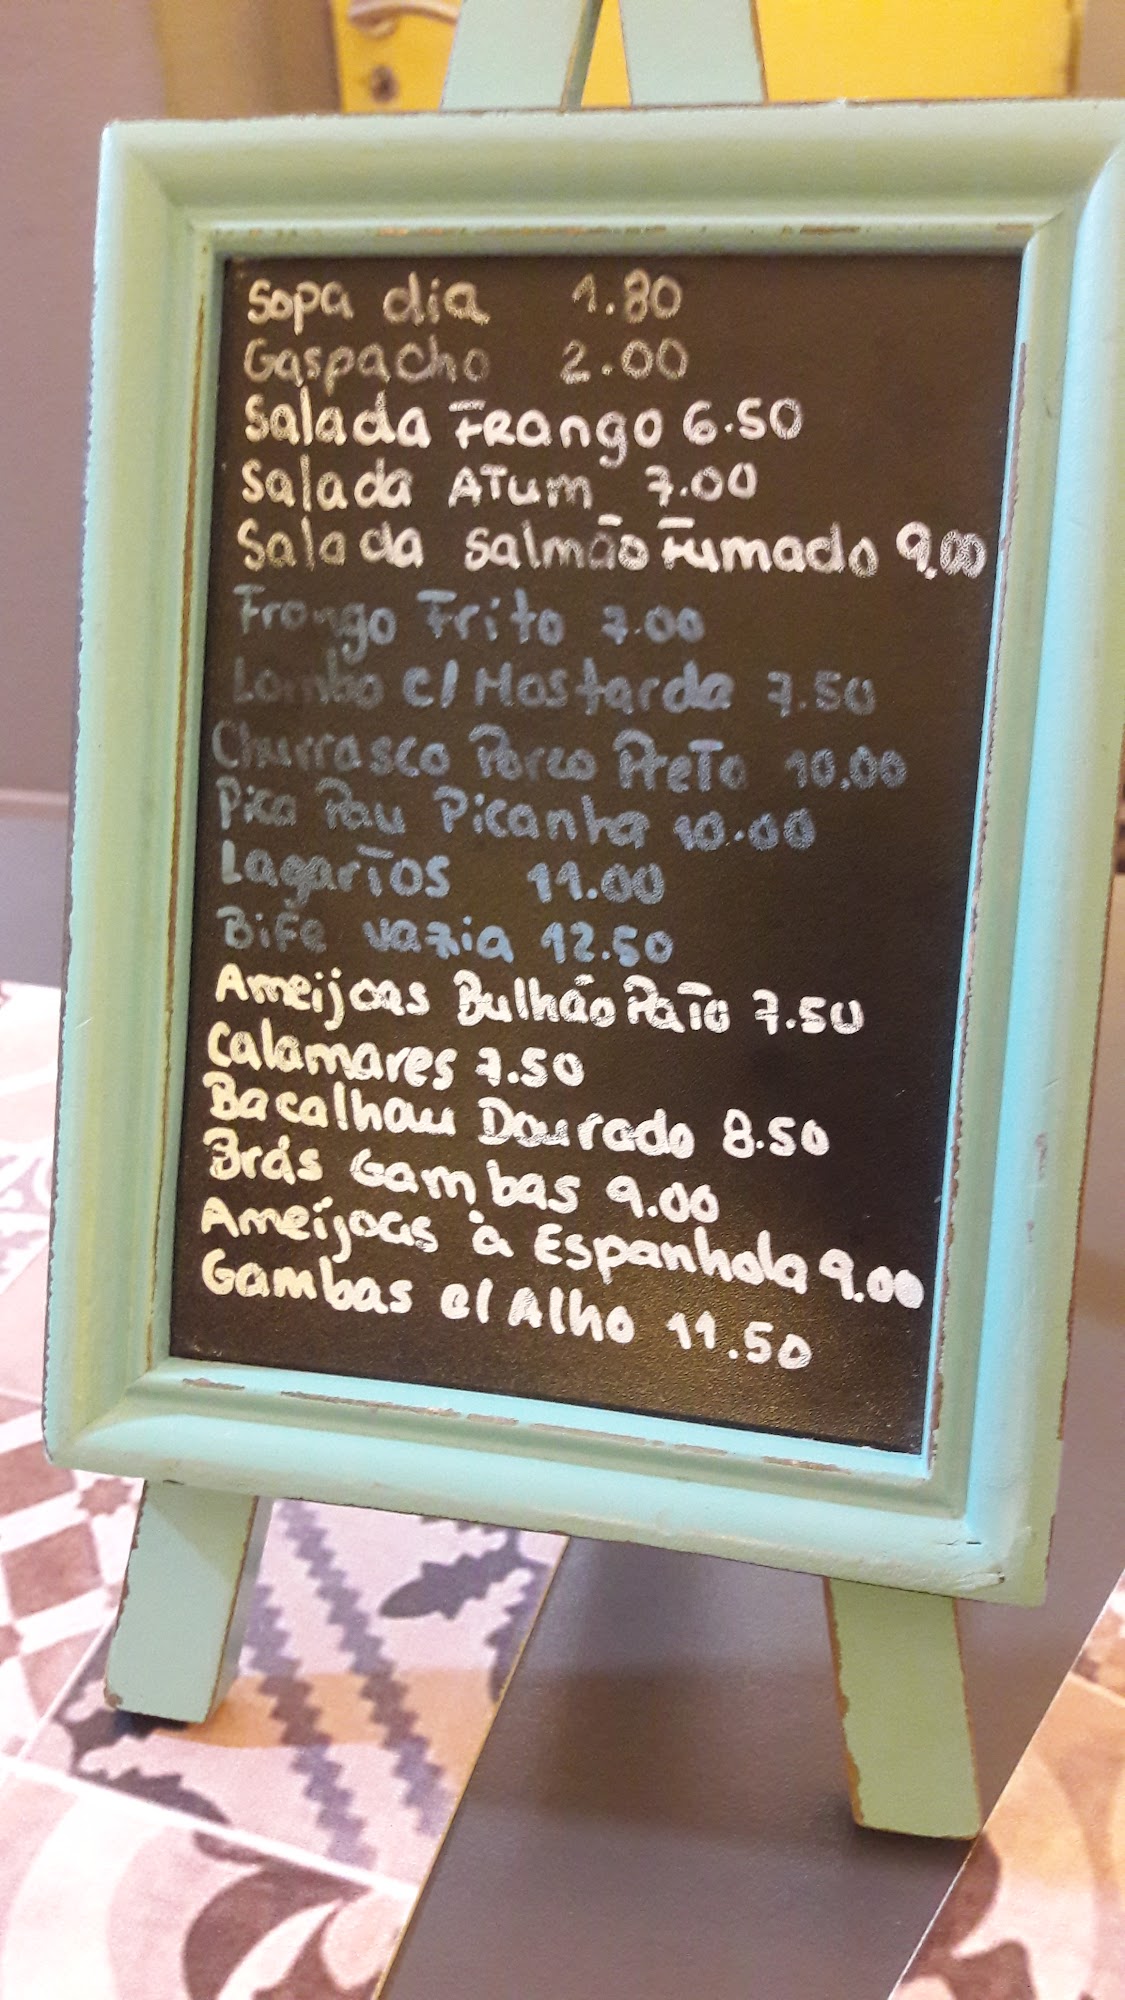 Sopa dia 1.80
Gaspacho 2.00
Salada Frango 6.50
Salada Atum 7.00
Salada Salmão Fumado 9.00
Frango Frito 7.00
Lombo c/ Mostarda 7.50
Churrasco Porco Preto 10.00
Pica Pau Picanha 10.00
Lagartos 11.00
Bife vazia 12.50
Ameijoas Bulhão Pato 7.50
Calamares 7.50
Bacalhau Dourado 8.50
Brás Gambas 9.00
Ameijoas à Espanhola 9.00
Gambas c/ Alho 11.50